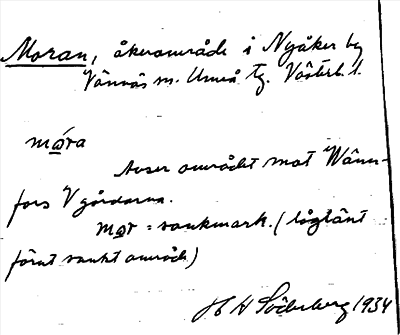 Moran, åkerområde i Nyåker by
Vännäs sn. Umeå tg. Västerb. l.
mo̲ra
Avser området mot Vänn-
fors V gårdarna.
mo̲r = sankmark. (låglänt
förut sankt område)
H W Söderberg 1934